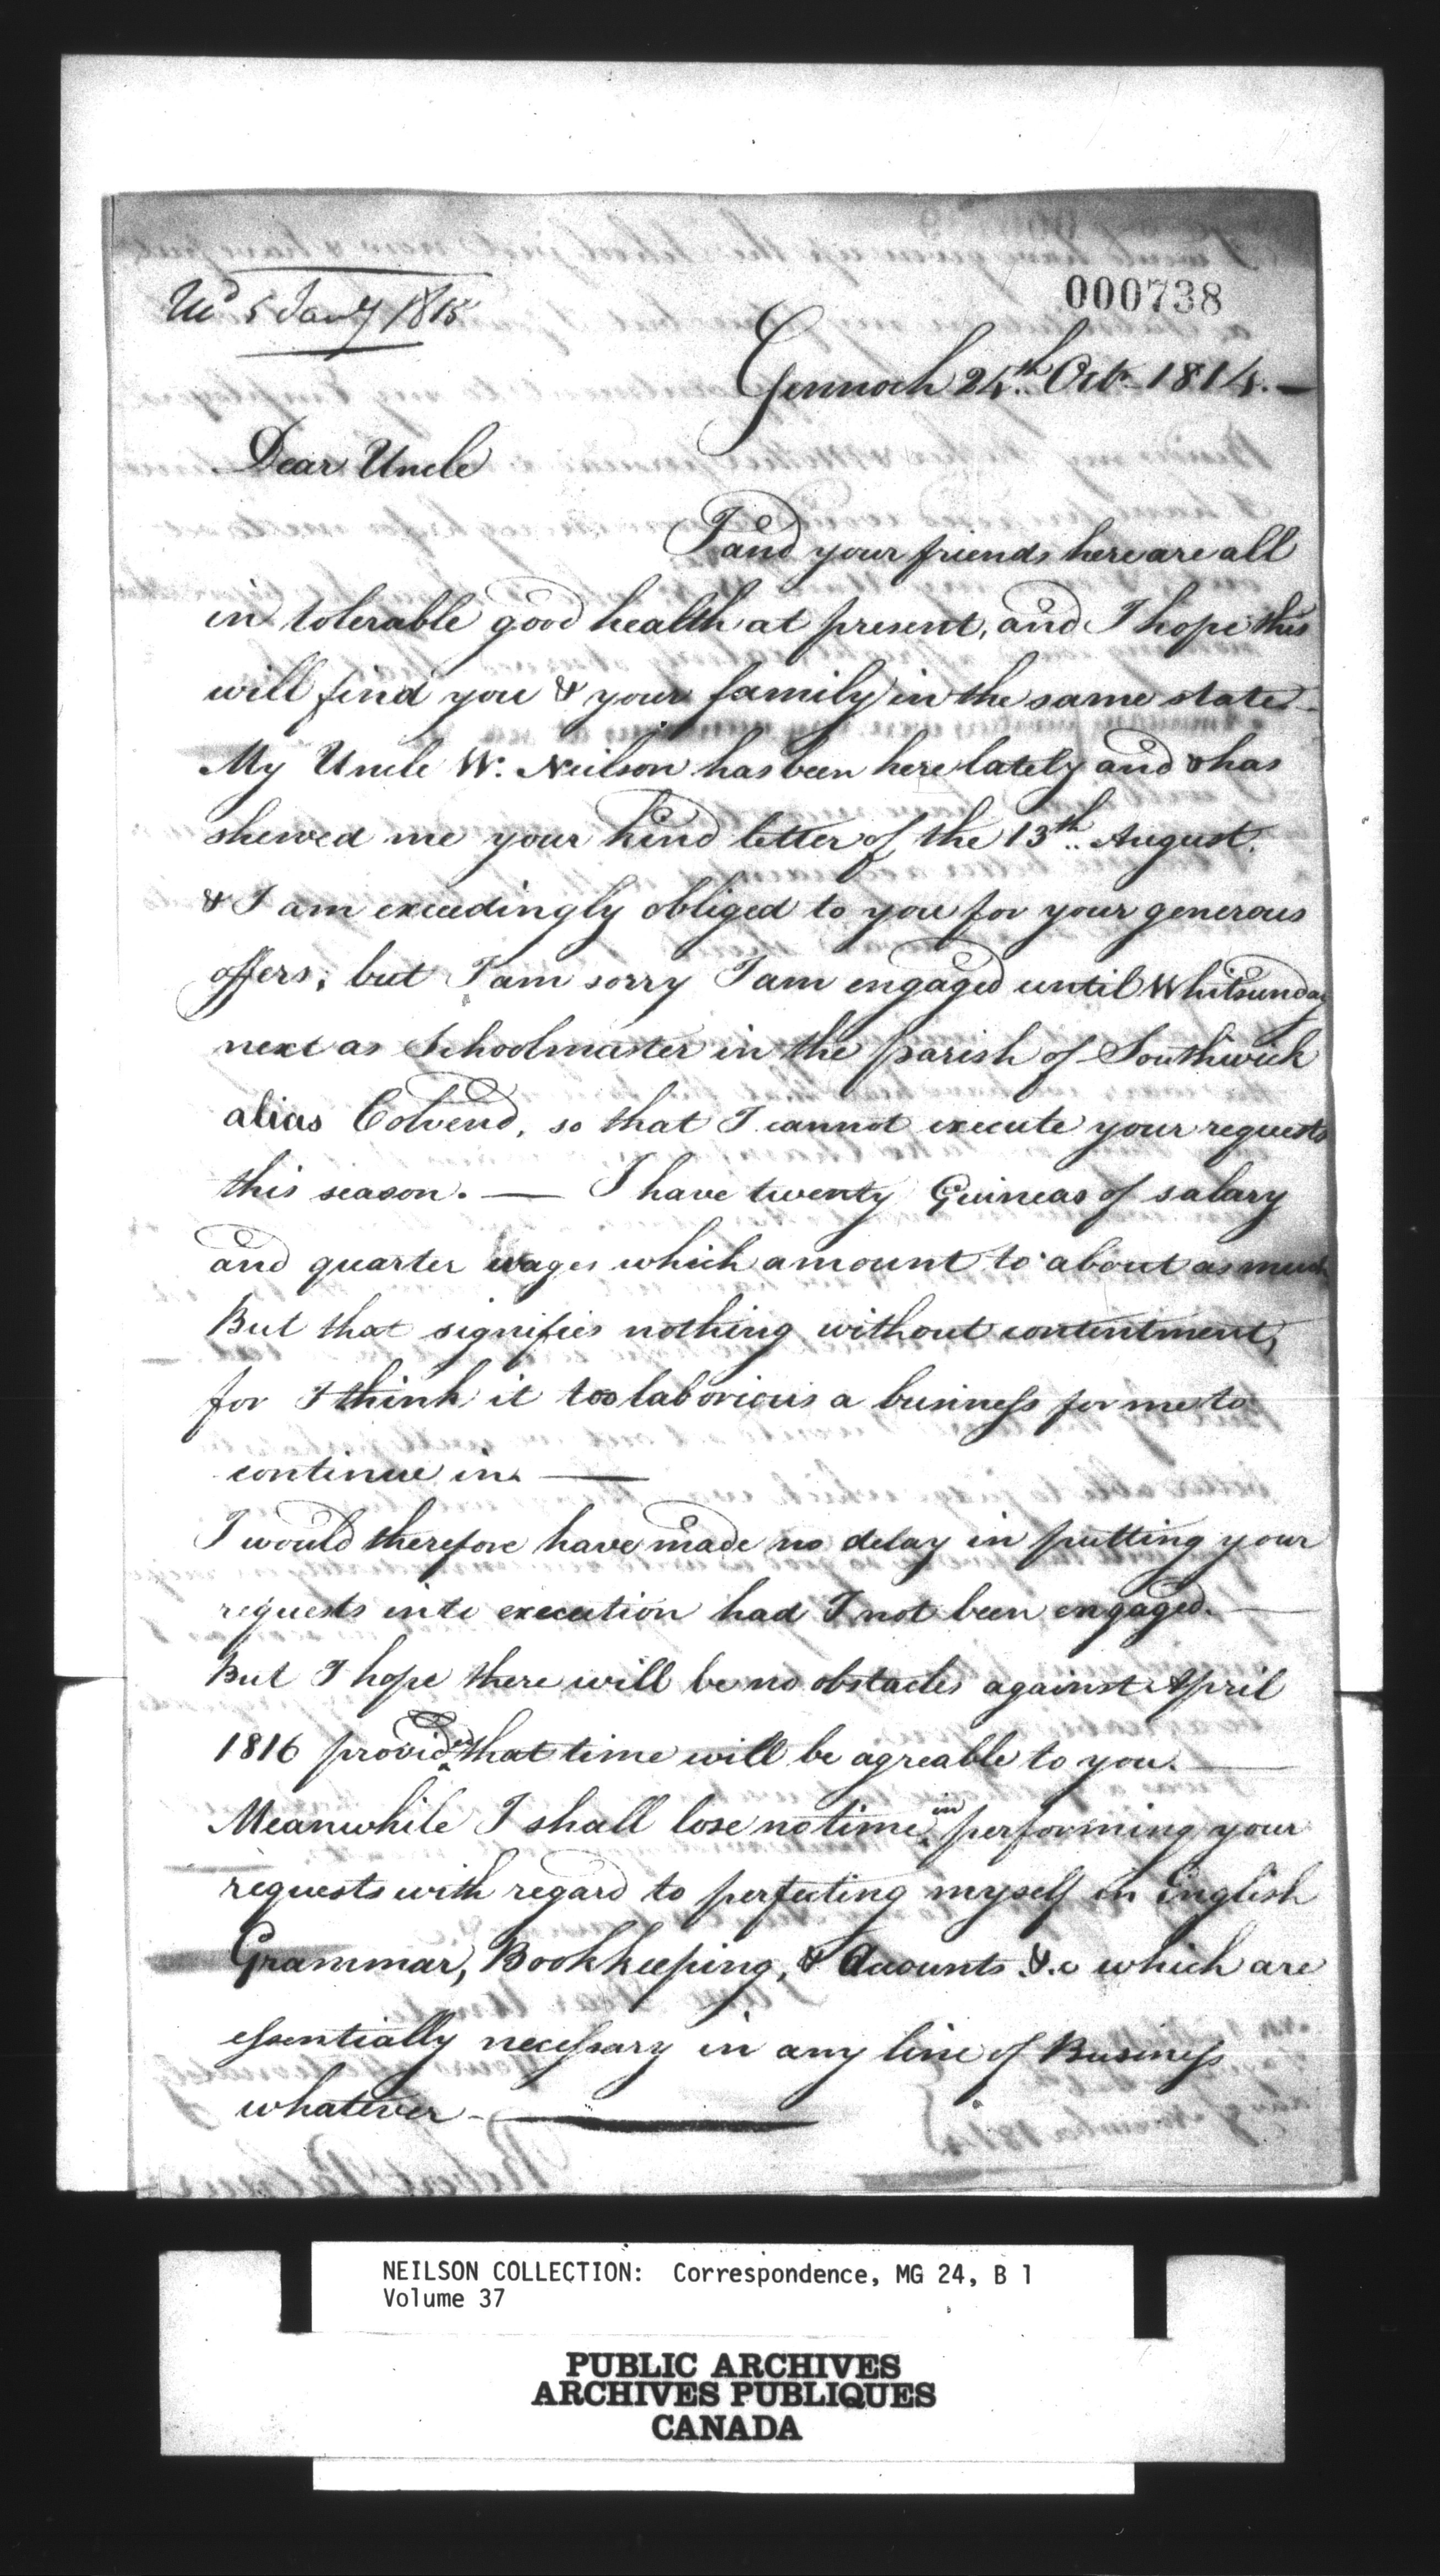 000738
5 Jany 1815
Gennoch 24th Octr 1814. —
Dear Uncle
I and your friends here are all
in tolerable good health at present, and I hope this
will find you & your family in the same state —
My Uncle W. Neilson has been here lately and has
shewed me your kind letter of the 13th August.
& I am exceedingly obliged to you for your generous
offers; but I am sorry I am engaged until Whitsunday
next as Schoolmaster in the parish of Southwick
alias Colvend, so that I cannot execute your requests
this season. — I have twenty Guineas of salary
and quarter wages which amount to about as much
But that signifies nothing without contentment,
for I think it too laborious a business for me to
continue in. —
I would therefore have made no delay in putting your
requests into execution had I not been engaged. —
But I hope there will be no obstacles against April
1816 provided that time will be agreable to you. —
Meanwhile I shall lose no time in performing your
requests with regard to perfecting myself in English
Grammar, Bookkeeping, & Accounts &.c which are
essentially necessary in any line of Business
whatever —
NEILSON COLLECTION: Correspondence, MG 24, B 1
Volume 37
PUBLIC ARCHIVES
ARCHIVES PUBLIQUES
CANADA